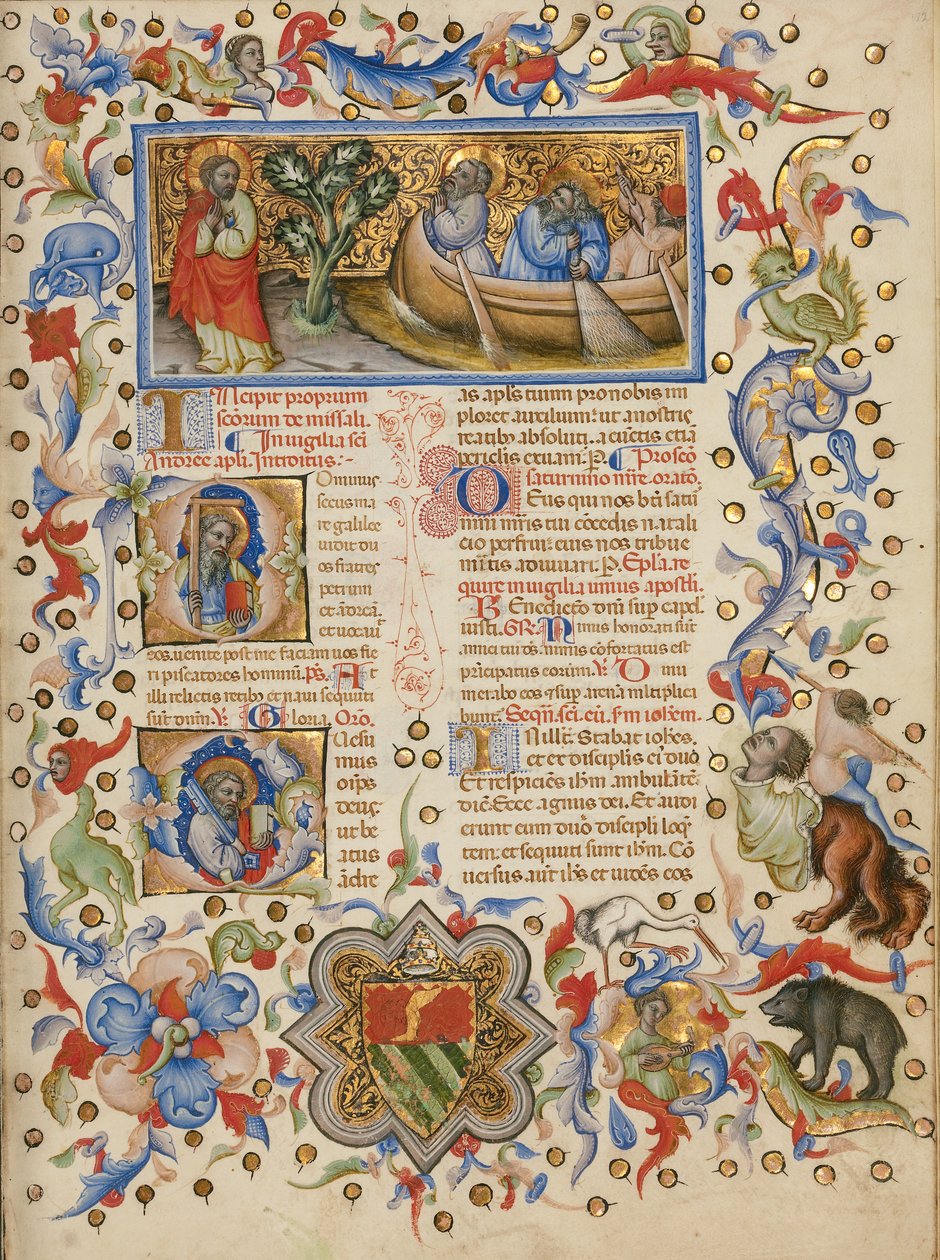 INcipit proprium
scōrum de missali.
In uigilia sci
Andree apli. Introitus:-
Dominus
secus ma
re galilee
uidit du
os fratres
petrum
et andreā.
et uocauit
eos. uenite post me faciam uos fie
ri piscatores hominū. ps. At
illi relictis retibꝫ et naui sequuti
sūt dnm̄. ℣. Gloria. Oro.
Quesu
mus
oīps
deus.
ut be
atus
ādre
as apl̄s tuum pro nobis im
ploret auxilium: ut a nostris
reatibꝫ absoluti. a cūctis etiā
periclis exuam̄. P. Pro scō
saturnino mr̄e. orato.
Deus qui nos bti satur
nini mr̄is tui cōcedis natali
cio perfrui: eius nos tribue
mītis adiuuari. P. Epl̄a. re
quire in uigilia unius apostli.
Benedictō dnī sup capd̄
iusti. GR. Nimis honorati sūt
amici tui ds̄. nimis cōfortatus est
prīcipatus eorum. ℣. Dinu
merabo eos et sup arenā mltiplici
bunt̄. Seqn̄. sci. eū. s̄m ioh̄em.
IN illt̄. Stabat ioh̄es.
et ex discipl̄is ei' duo.
Et respiciēs ih̄m. ambulātē.
dic̄. Ecce agnus dei. Et audi
erunt eum duo discipl̄i loqn̄
tem: et sequuti sunt ih̄m. Cō
uersus aūt ih̄s et uidēs eos